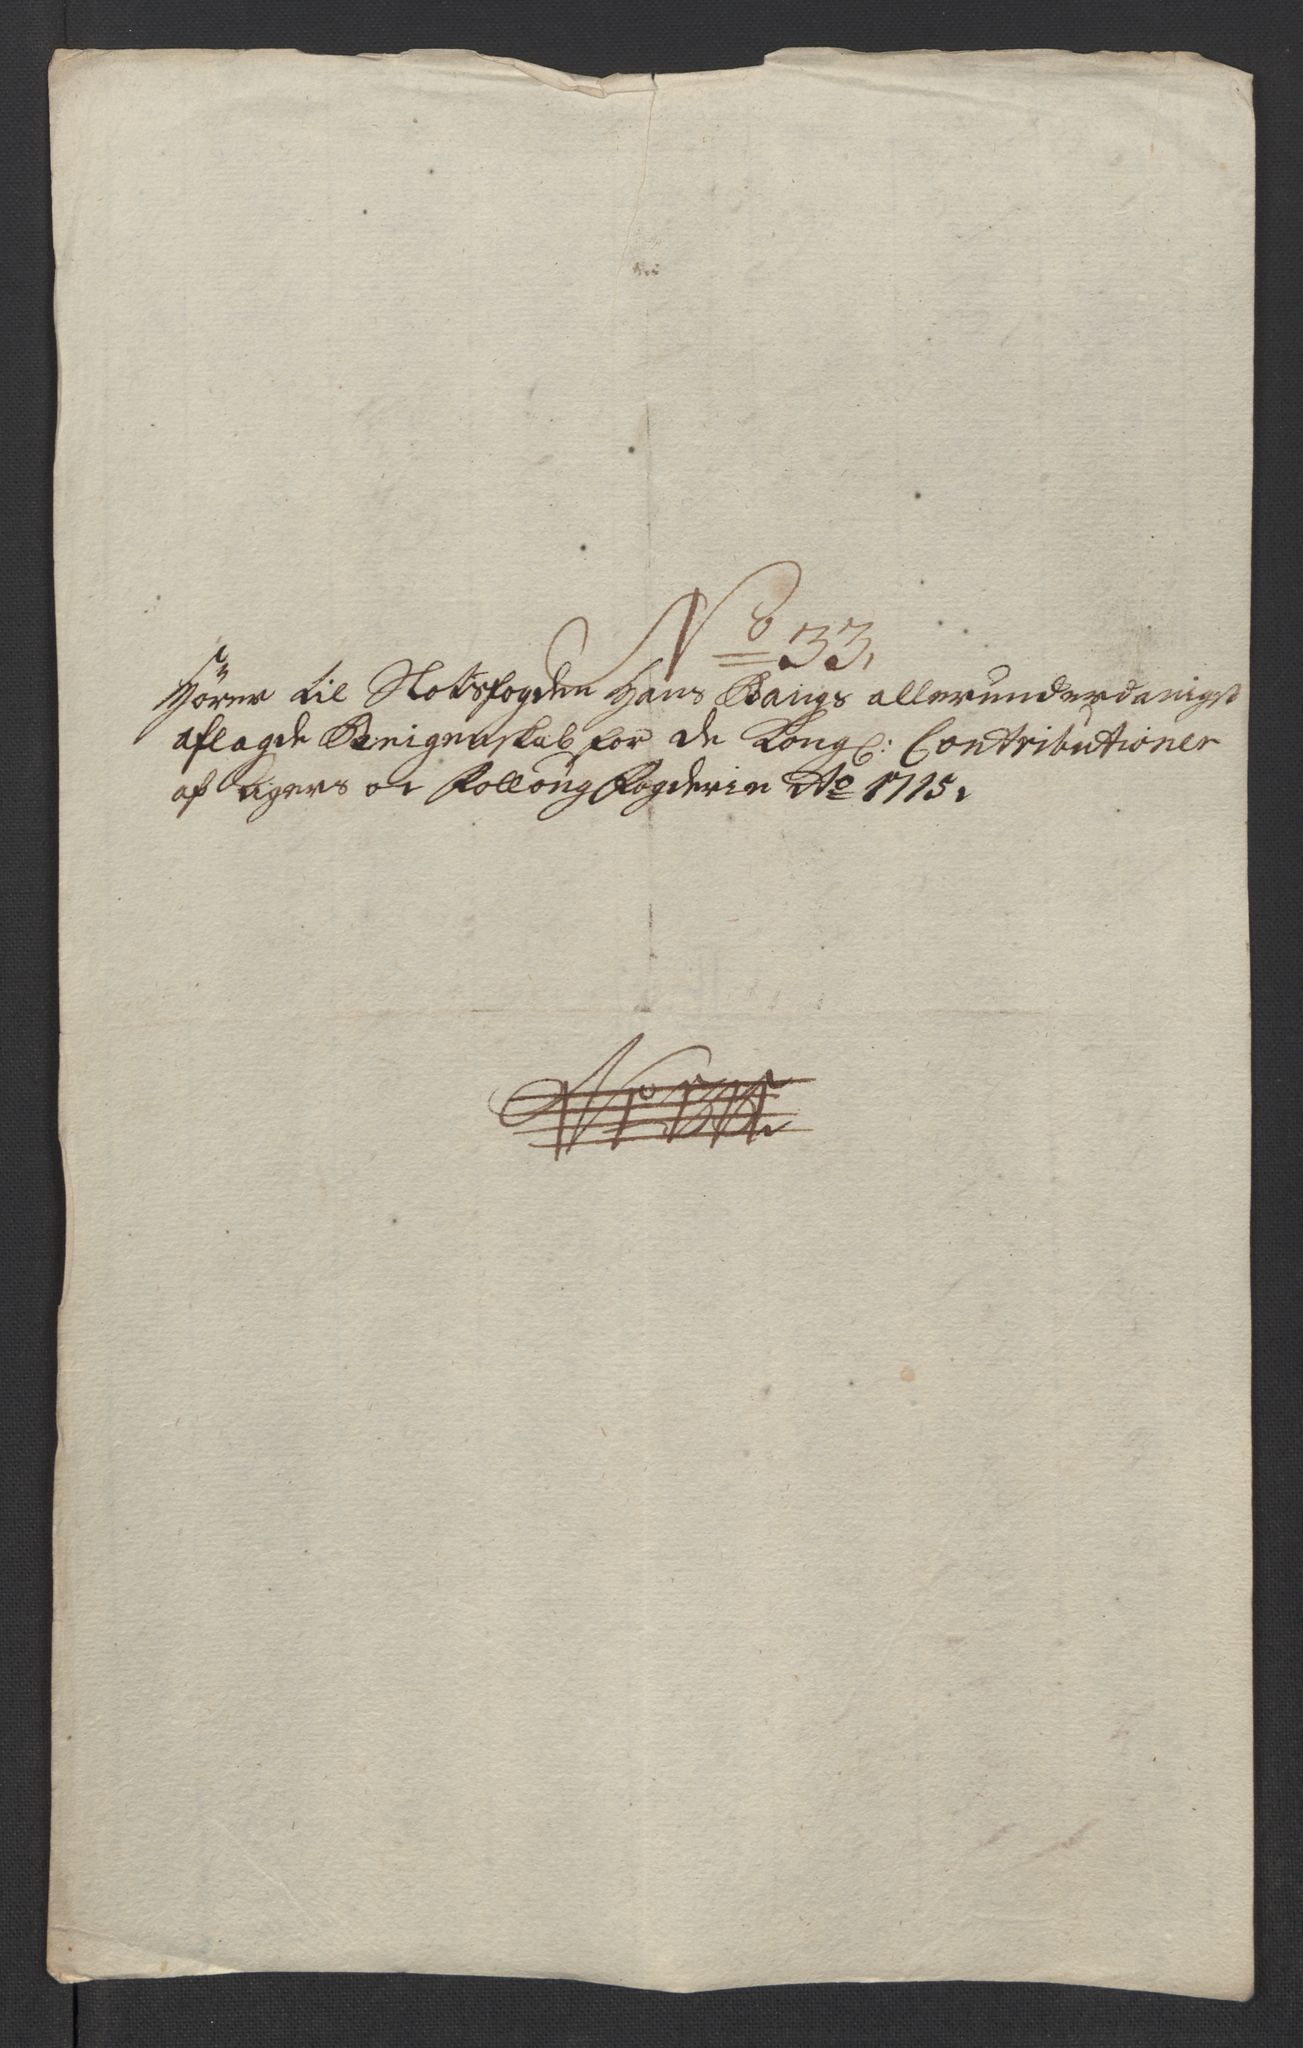 No 33,
Hörer til Slotsfogden Hans Bangs allerunderdanigst
aflagde Reigenskab for de Kongl: Contributioner
af Agers oc Folloug Fogderie Ao 1715,